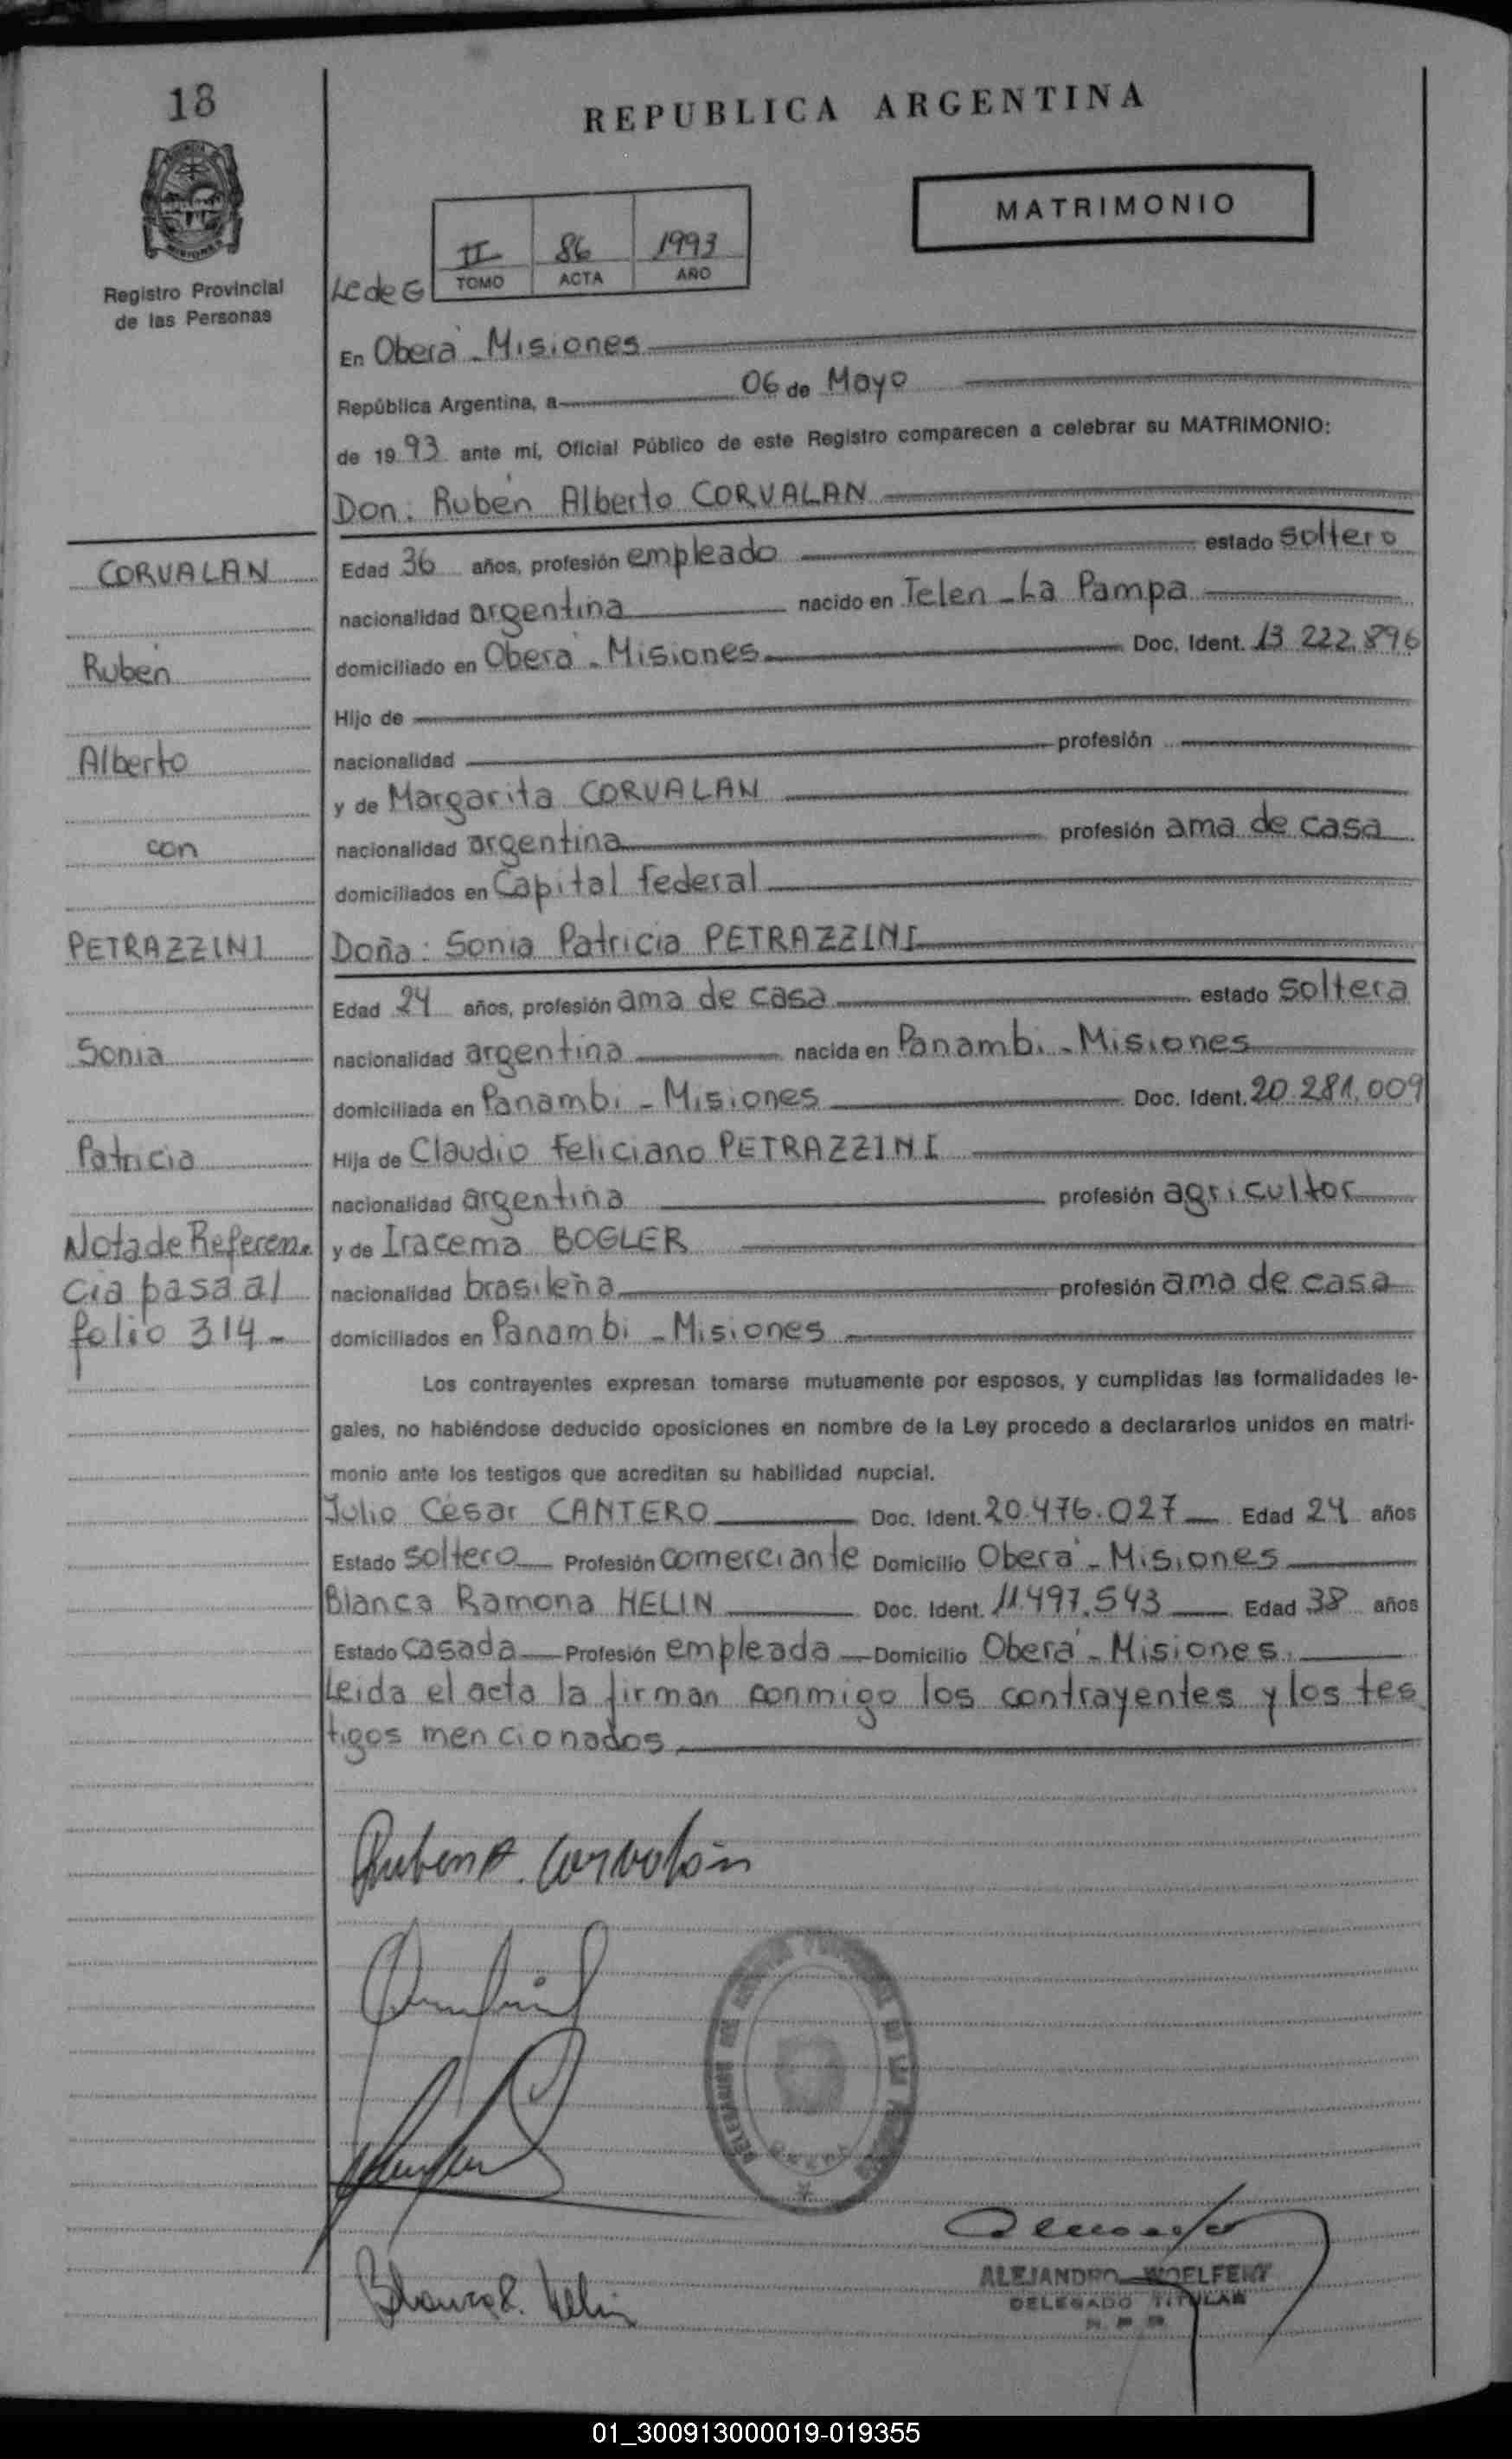 18
REPUBLICA ARGENTINA
MATRIMONIO
II 86 1993
TOMO ACTA AÑO
Registro Provincial
de las Personas
Lc de G
En Oberá - Misiones
República Argentina, a 06 de Mayo
de 1993 ante mí, Oficial Público de este Registro comparecen a celebrar su MATRIMONIO:
Don: Rubén Alberto CORVALAN
Edad 36 años, profesión empleado estado soltero
CORVALAN
nacionalidad argentina nacido en Telen - La Pampa
domiciliado en Oberá - Misiones Doc. Ident. 13.222.896
Rubén
Hijo de
nacionalidad profesión
Alberto
y de Margarita CORVALAN
nacionalidad argentina profesión ama de casa
con
domiciliados en Capital Federal
PETRAZZINI
Doña: Sonia Patricia PETRAZZINI
Edad 24 años, profesión ama de casa estado soltera
nacionalidad argentina nacida en Panambi - Misiones
Sonia
domiciliada en Panambi - Misiones Doc. Ident. 20.281.009
Hija de Claudio Feliciano PETRAZZINI
Patricia
nacionalidad argentina profesión agricultor
y de Iracema BOGLER
Nota de Referen-
nacionalidad brasileña profesión ama de casa
cia pasa al
domiciliados en Panambi - Misiones
folio 314-
Los contrayentes expresan tomarse mutuamente por esposos, y cumplidas las formalidades le-
gales, no habiéndose deducido oposiciones en nombre de la Ley procedo a declararlos unidos en matri-
monio ante los testigos que acreditan su habilidad nupcial.
Julio César CANTERO Doc. Ident. 20.476.027 Edad 24 años
Estado soltero Profesión comerciante Domicilio Oberá - Misiones
Blanca Ramona HELIN Doc. Ident. 11.497.543 Edad 38 años
Estado casada Profesión empleada Domicilio Oberá - Misiones.
Leida el acta la firman conmigo los contrayentes y los tes
tigos mencionados
Ruben A. Corvalán
Blanca R. Helin
ALEJANDRO WOELFERT
DELEGADO TITULAR
R. P. P.
01_300913000019-019355